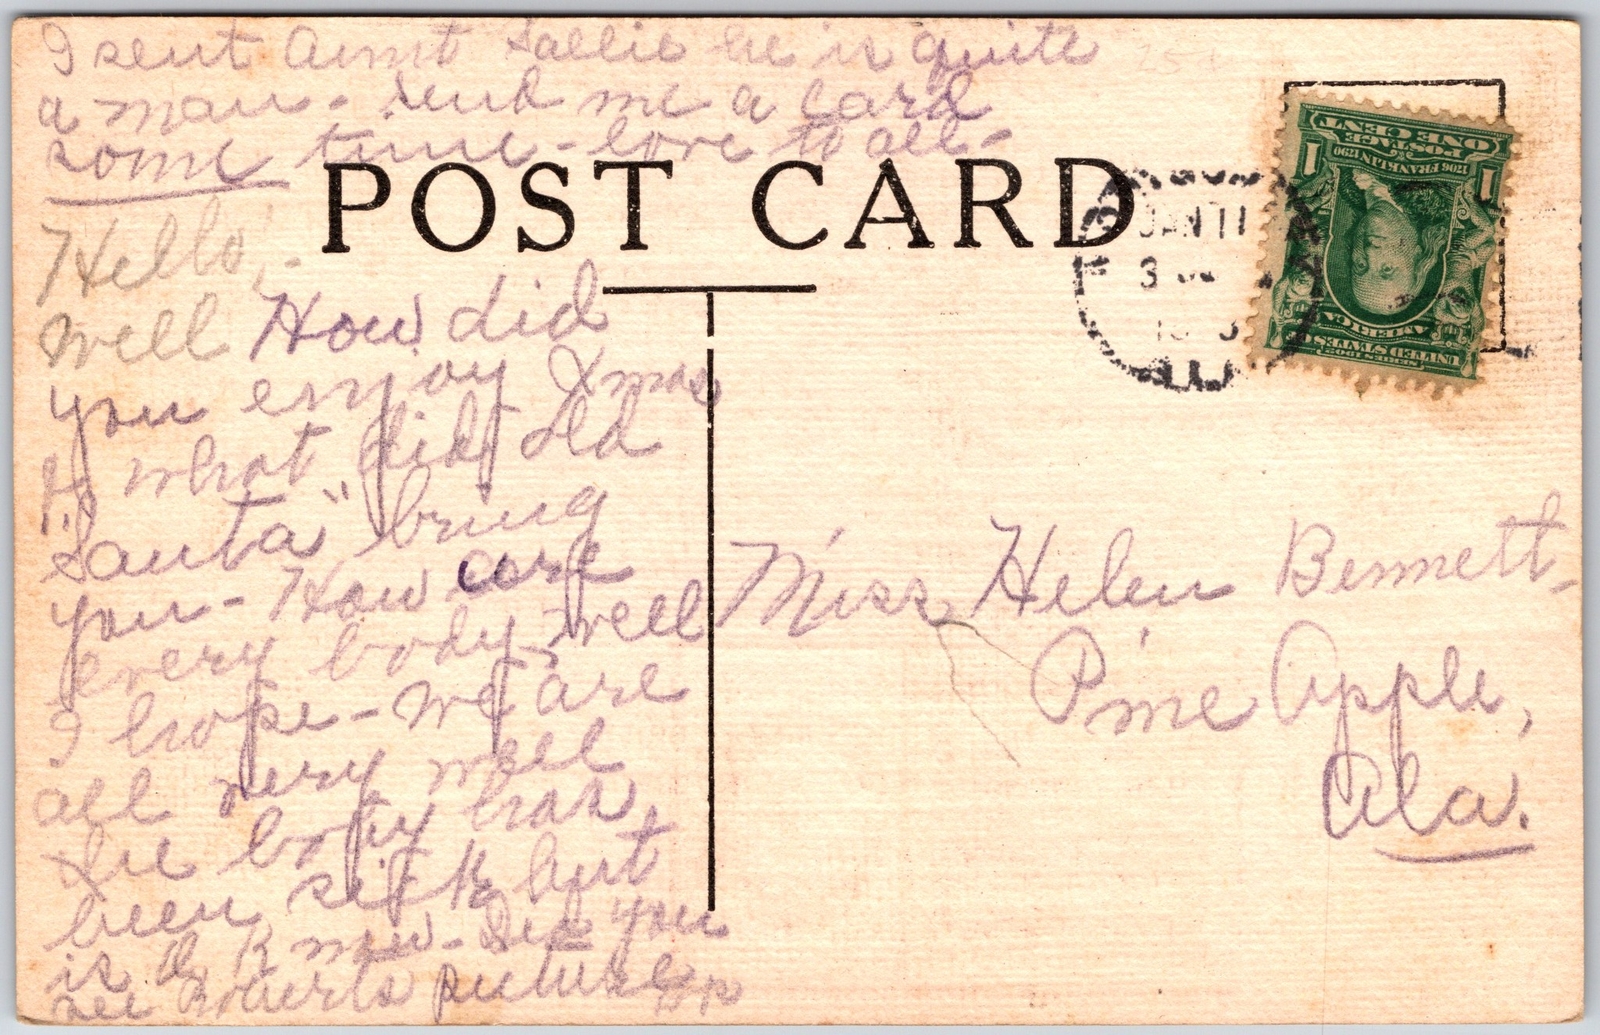 I sent Aunt Sallie he is quite
a man - send me a card
some time - love to all -
POST CARD
Hello, -
Well How did
you enjoy Xmas
& what did Old
Santa" bring
you - How are
every body, well
I hope - We are
all very well
The baby has
been sick but
is O.K. now - Did you
see Roberts picture
JAN 11
3
ONE CENT
POSTAGE
1706 FRANKLIN 1790
1 1
AMERICA
UNITED STATES OF
SERIES 1902
Miss Helen Bennett -
Pine Apple,
Ala.